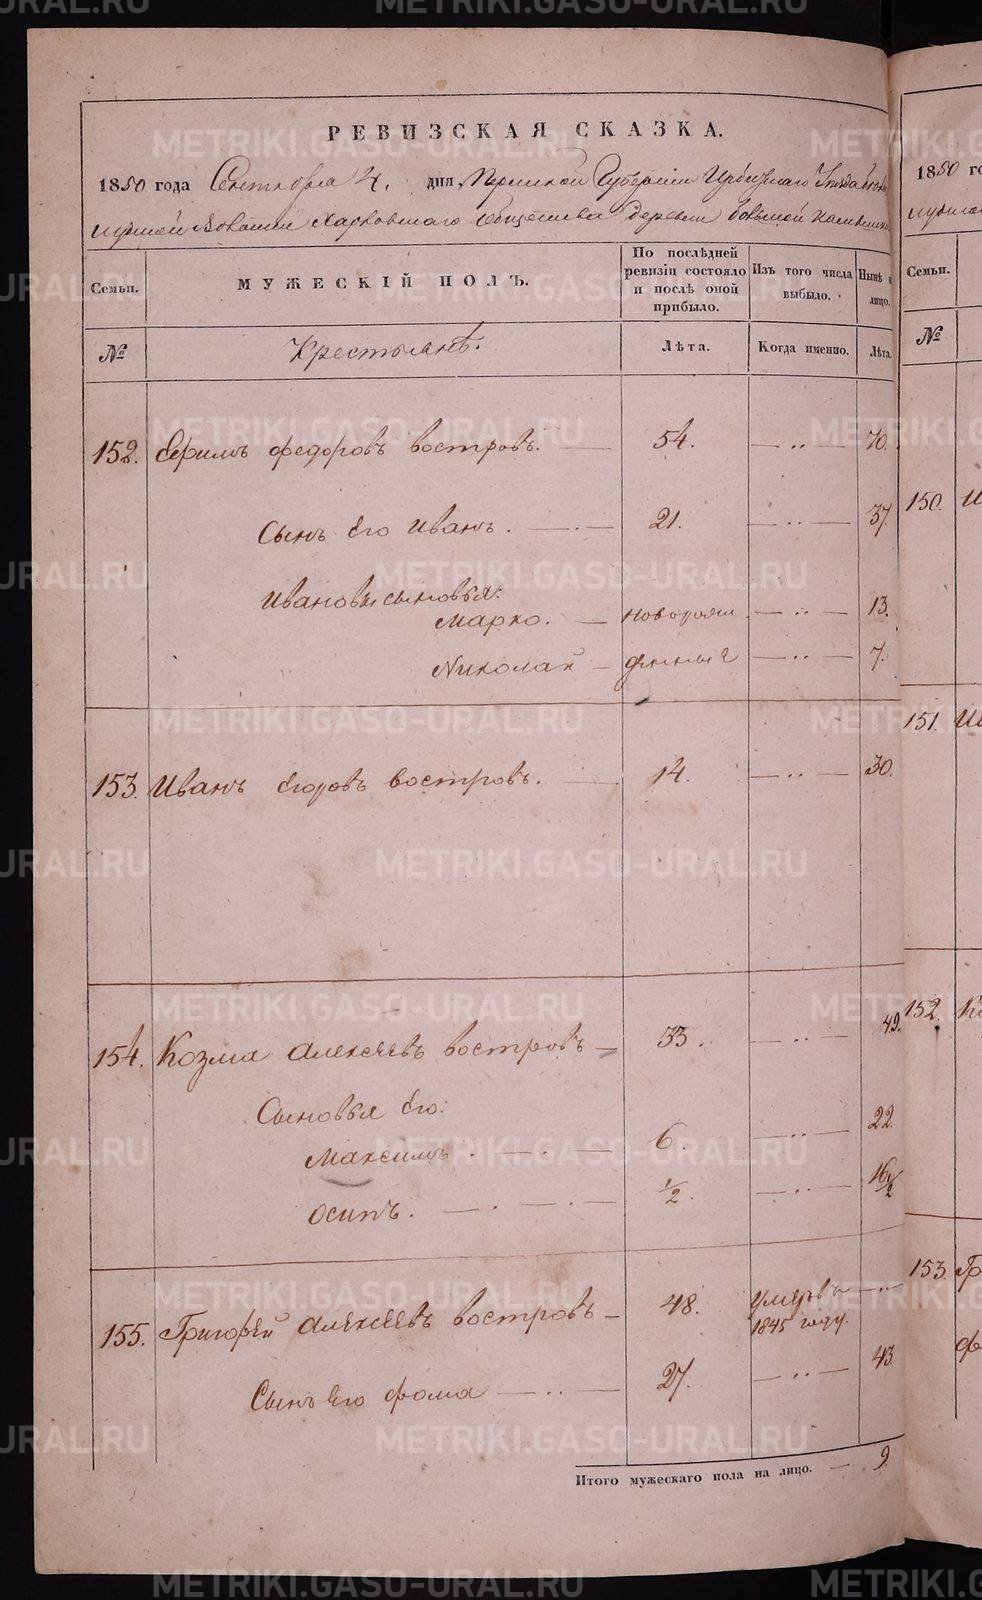 РЕВИЗСКАЯ СКАЗКА.
1850 года Сентября 4. дня Пермской Губернии Ирбитскаго Уезда
волости Харловскаго Общества Деревни большой
Семьи. МУЖЕСКІЙ ПОЛЪ. По послѣдней ревизіи состояло и послѣ оной прибыло. Изъ того числа выбыло. Нынѣ на лицо.
№ Крестьянъ. Лѣта. Когда именно. Лѣта.
152. Ефимъ федоровъ востровъ. 54. 70.
Сынъ Его Иванъ. 21. 37
Ивановы сыновья:
Марко. новорож 13.
Николай денныя 7.
153. Иванъ Егоровъ востровъ. 14. 30.
154. Козма Алексѣевъ востровъ 33. 49.
Сыновья Его:
Максимъ. 6. 22
осипъ. 1/2. 16 1/2
155. Григорей Алексѣевъ востровъ 48. умеръ въ 1845 году.
Сынъ его фома 27. 43.
Итого мужескаго пола на лицо. 9.
1850
Семьи.
№
150.
151.
152.
153. Гр
METRIKI.GASO-URAL.RU